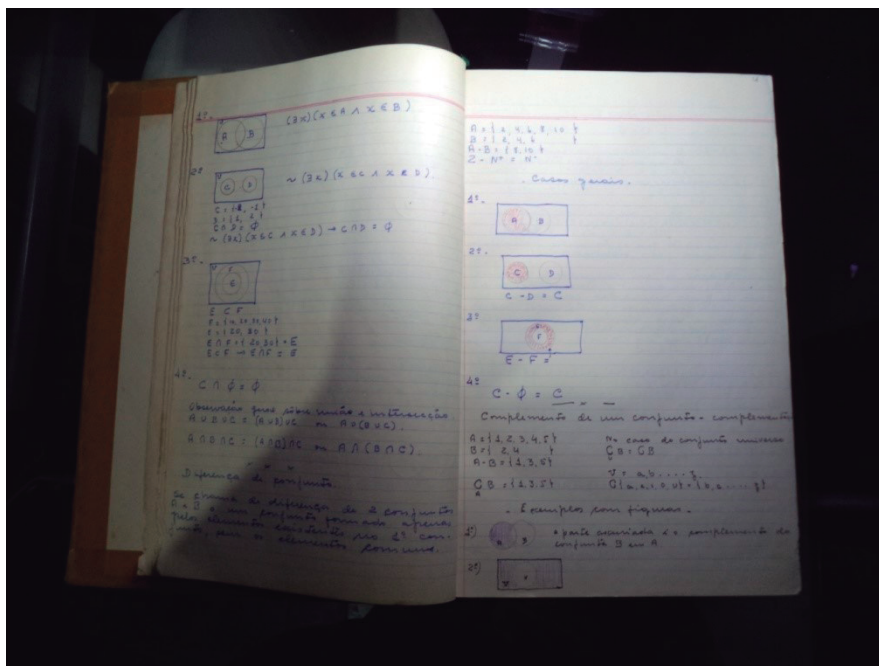 1º-
A B
(∃x)(x ∈ A ∧ x ∈ B)
2º
C D
~(∃x)(x ∈ C ∧ x ∈ D)
C ∩ D = ϕ
~(∃x)(x ∈ C ∧ x ∈ D) → C ∩ D = ϕ
3º-
F
E
E ⊂ F
E = {20, 30}
E ∩ F = {20, 30} = E
E ⊂ F → E ∩ F = E
4º-
C ∩ ϕ = ϕ
Observação geral sobre união e intersecção
A ∪ B ∪ C = (A ∪ B) ∪ C ou A ∪ (B ∪ C).
A ∩ B ∩ C = (A ∩ B) ∩ C ou A ∩ (B ∩ C).
Diferença de conjunto.
Se chama de diferença de 2 conjuntos
A e B a um conjunto formado apenas
pelos elementos do 1º con-
junto, sem os elementos comuns.
A = {2, 4, 6, 8, 10}
B = {2, 4, 6}
A - B = {8, 10}
Casos gerais.
1º-
A B
2º-
C D
C - D = C
3º
F
E - F =
4º
C - ϕ = C
Complemento de um conjunto - complemento
A = {1, 2, 3, 4, 5}
B = {2, 4}
A - B = {1, 3, 5}
No caso do conjunto universo
∁ B = {1, 3, 5}
A
- Exemplos com figuras -
1º)
A B
A parte assinalada é o complemento do
conjunto B em A
2º)